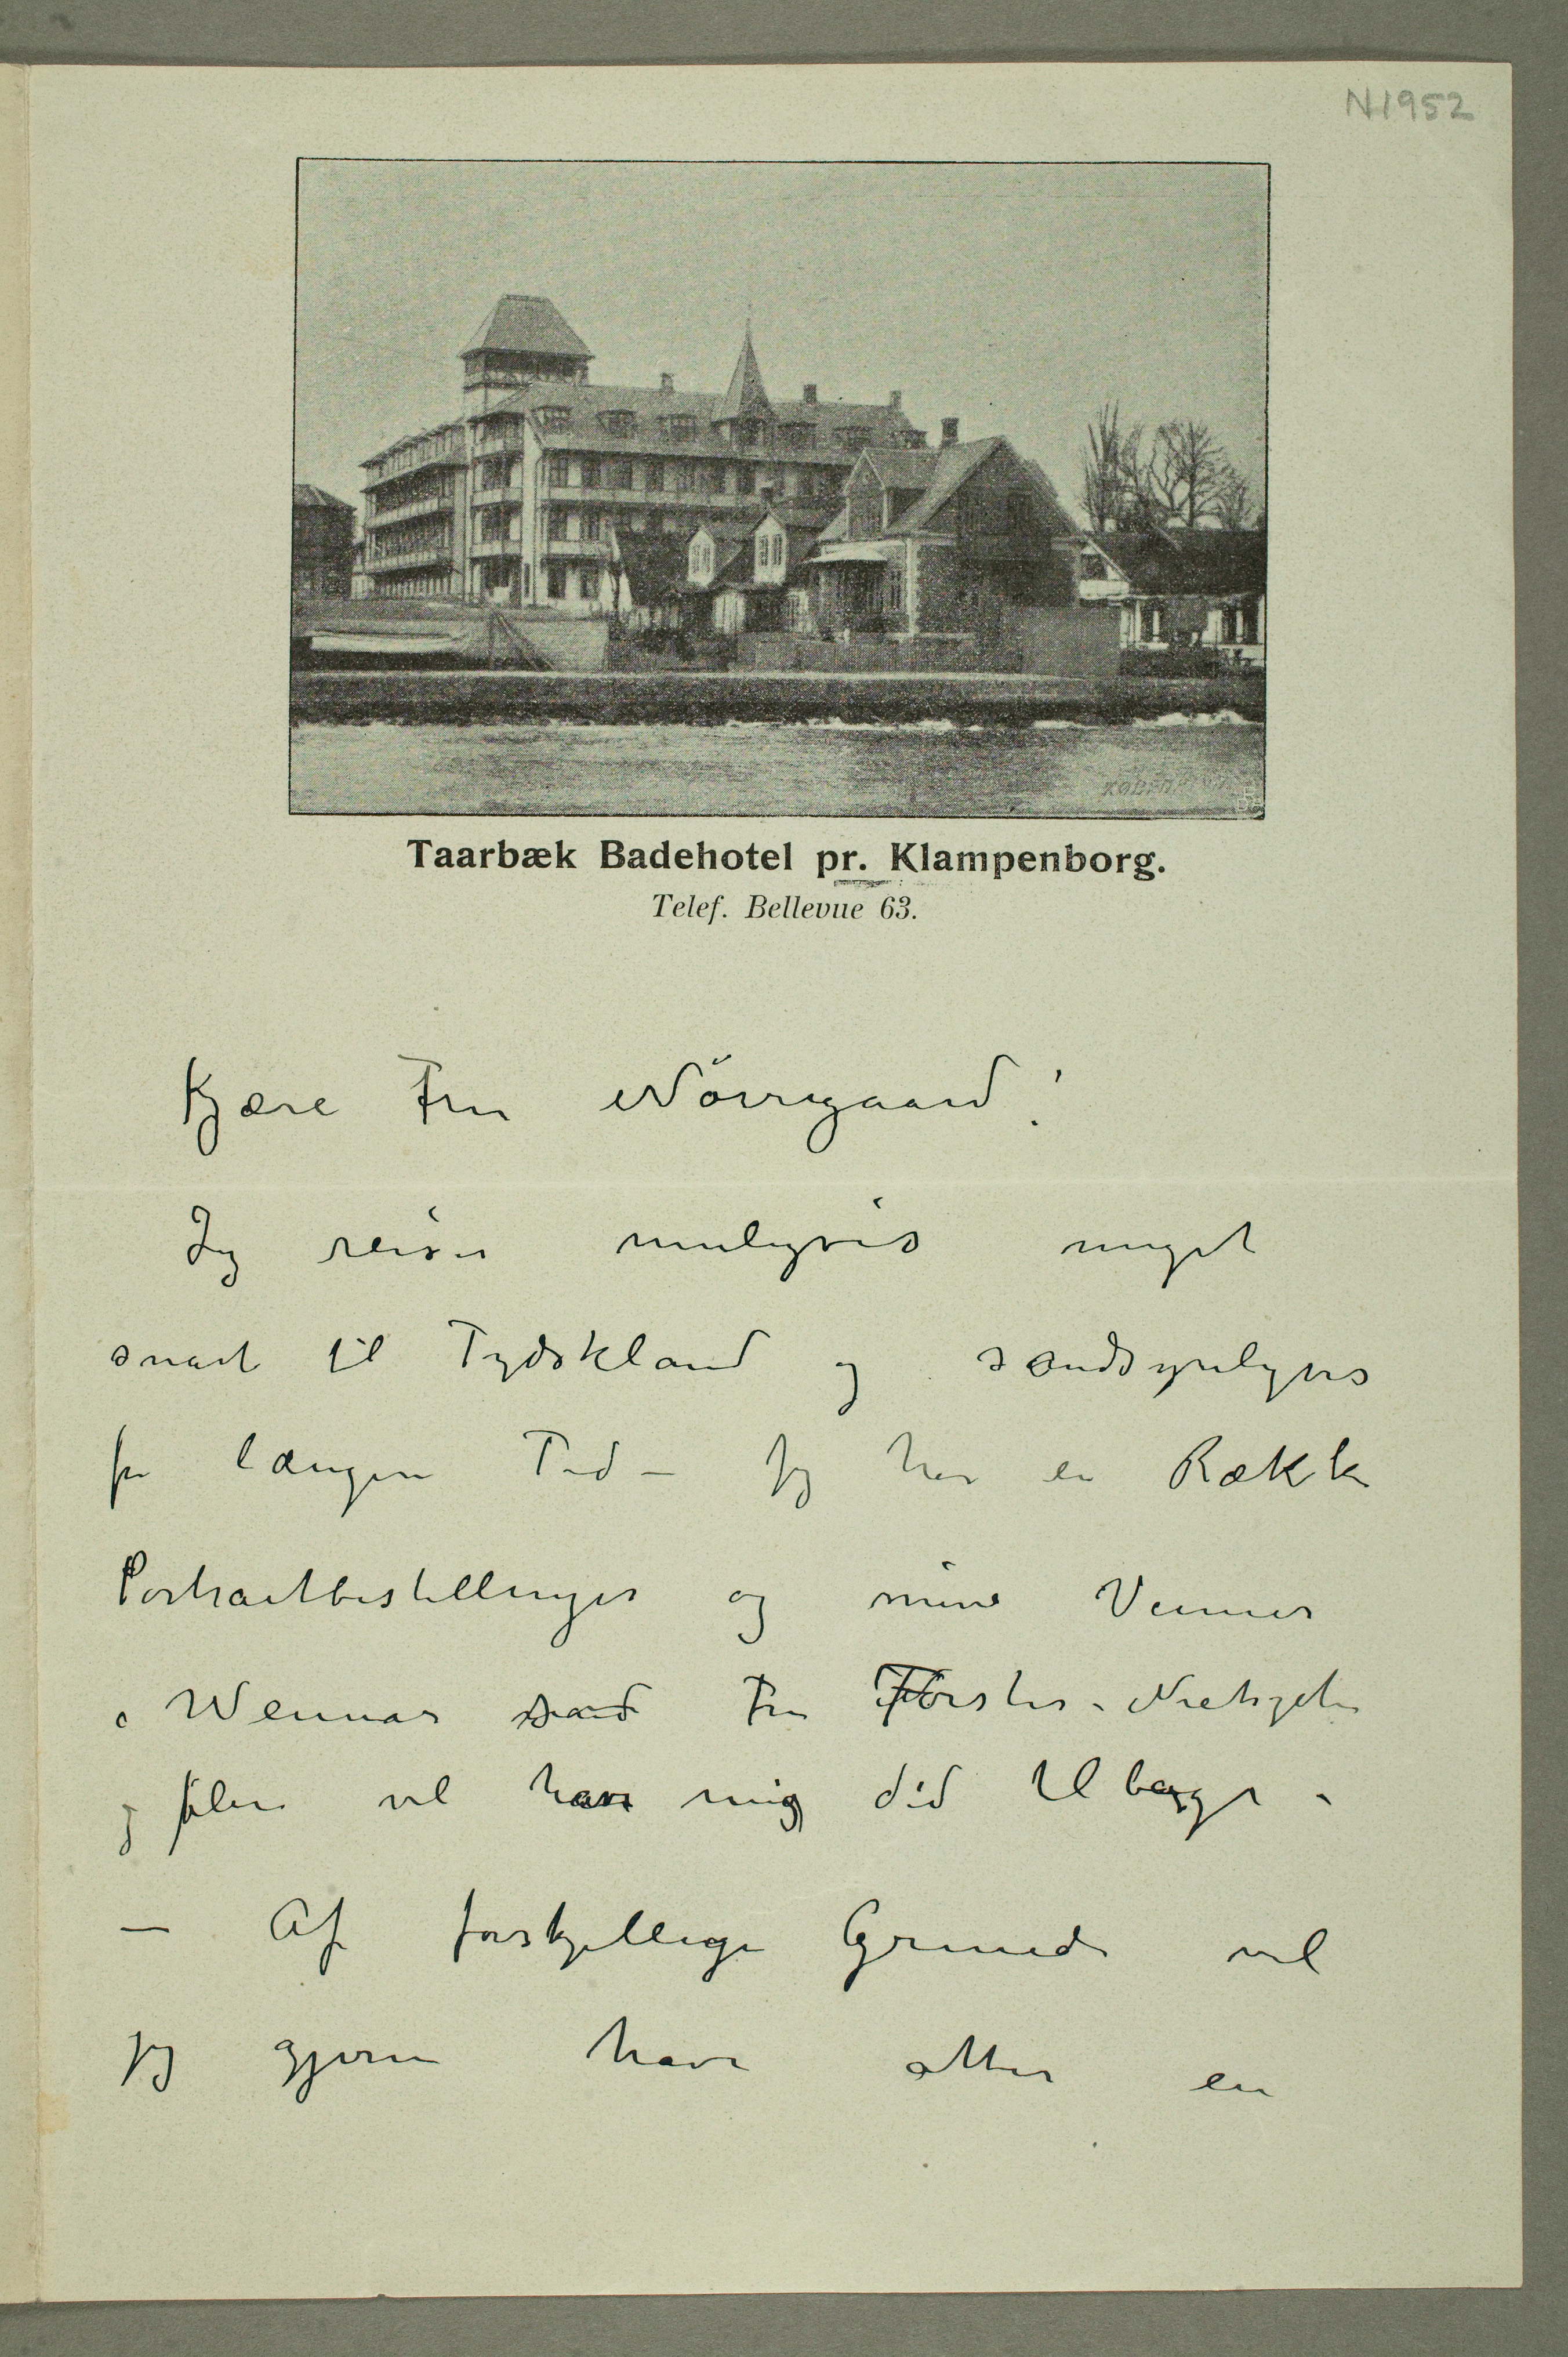 N 1952
KØBENHAVN
Taarbæk Badehotel pr. Klampenborg.
Telef. Bellevue 63.
Kjære Fru Nörregaard!
Jeg reiser muligvis meget
snart til Tydskland og sandsynligvis
for længere Tid – Jeg har en Række
Portraitbestillinger og mine Venner
i Weimar Fru Förster-Nietzsche
og flere vil have mig did tilbage –
– Af forskjellige Grunde vil
jeg gjerne have atter en